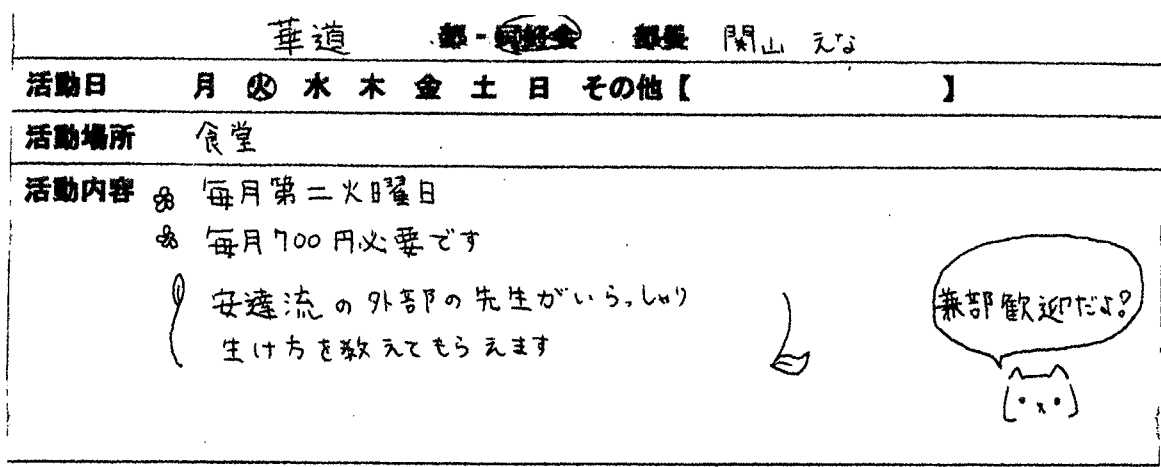 華道 部・同好会 部長 関山 えな
活動日 月 火 水 木 金 土 日 その他【 】
活動場所 食堂
活動内容 毎月第二火曜日
毎月700円必要です
安達流の外部の先生がいらっしゃり
生け方を教えてもらえます
兼部歓迎だよ?